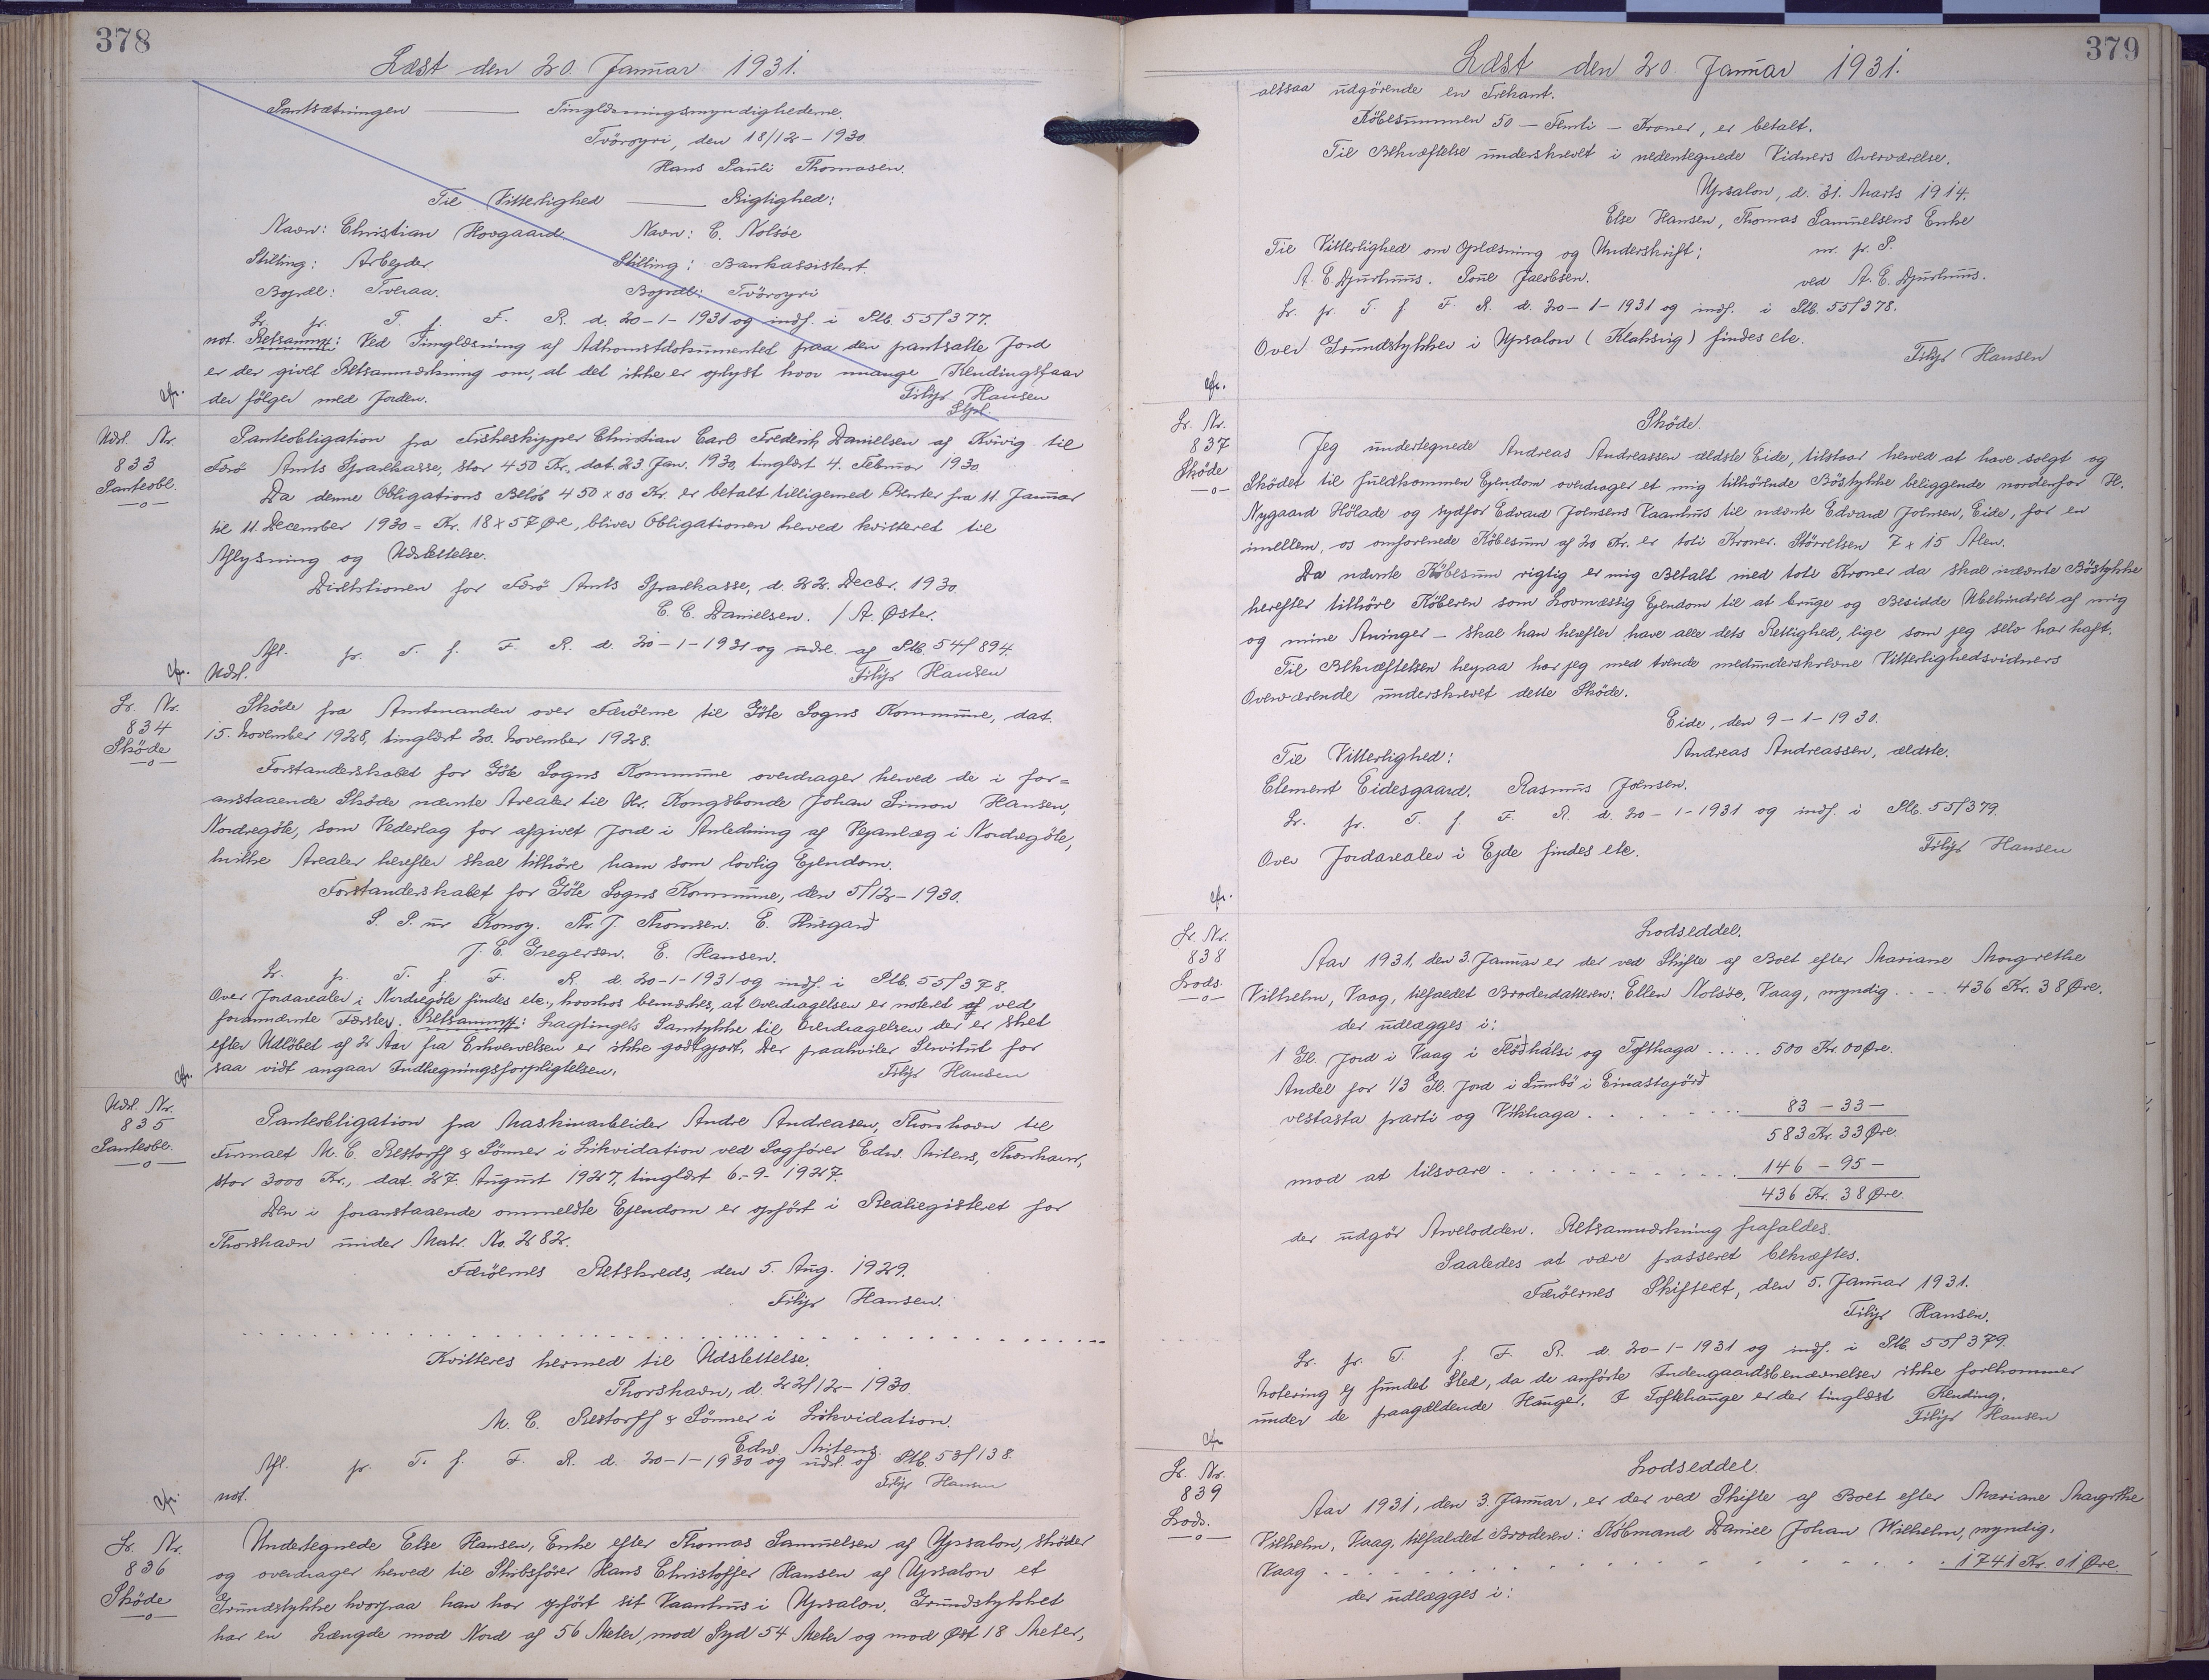 378
Læst den 20. Januar 1931.
Pantsætningen ——— Tinglæsningsmyndighederne.
Tvöroyri, den 18/12 - 1930.
Hans Pauli Thomasen.
Til Vitterlighed ——— Rigtighed:
Navn: Christian Hovgaard Navn: C. Nolsöe
Stilling: Arbejder. Stilling: Bankassistent.
Bopæl: Tveraa. Bopæl: Tvöroyri
Lr. fr. T. f. F. R. d. 20-1-1931 og indf. i Ptb. 55/377.
not. Retsanmk: Ved Tinglæsning af Adkomstdokumentet paa den pantsatte Jord
er der givet Retsanmærkning om, at det ikke er oplyst hvor mange Kendingsfaar
cfr. der følger med Jorden. Filip Hansen
Udsl. Nr. 833 Panteobl.
Panteobligation fra Fiskeskipper Christian Carl Frederik Danielsen af Kvivig til
Færö Amts Sparekasse, stor 450 Kr., dat. 23. Jan. 1930, tinglæst 4. Februar 1930.
Da denne Obligations Beløb 450 x 00 Kr. er betalt tilligemed Renter fra 11. Januar
til 11. December 1930 = Kr. 18 x 57 Øre, bliver Obligationen herved kvitteret til
Aflysning og Udslettelse.
Direktionen for Færö Amts Sparekasse, d. 22. Decbr. 1930.
C. C. Danielsen. / A. Øster.
Afl. fr. T. f. F. R. d. 20-1-1931 og udsl. af Ptb. 54/894.
cfr. Udsl. Filip Hansen
Lr. Nr. 834 Sköde
Sköde fra Amtmanden over Færöerne til Göte Sogns Kommune, dat.
15. November 1928, tinglæst 20. November 1928.
Forstanderskabet for Göte Sogns Kommune overdrager herved de i for=
anstaaende Sköde nævnte Arealer til Hr. Kongsbonde Johan Simon Hansen,
Nordregöte, som Vederlag for afgivet Jord i Anledning af Vejanlæg i Nordregöte,
hvilke Arealer herefter skal tilhöre ham som lovlig Ejendom.
Forstanderskabet for Göte Sogns Kommune, den 5/12-1930.
S. P. ur Konoy. Th. J. Thomsen. E. Húsgarð
J. C. Gregersen. E. Hansen.
Lr. fr. T. f. F. R. d. 20-1-1931 og indf. i Ptb. 55/378.
Over Jordarealer i Nordregöte findes etc., hvorhos bemærkes, at Overdragelsen er noteret af ved
forannævnte Færster. Retsanmk: Lagtingets Samtykke til Overdragelsen der er sket
efter Udløbet af 2 Aar fra Erhvervelsen er ikke godtgjort. Der paahviler Servitut for
cfr. saa vidt angaar Indhegningsforpligtelsen. Filip Hansen
Udsl. Nr. 835 Panteobl.
Panteobligation fra Maskinarbeider Andre Andreasen, Thorshavn til
Firmaet M. C. Restorff & Sönner i Likvidation ved Sagförer Edw. Mitens, Thorshavn,
stor 3000 Kr., dat. 27. August 1927, tinglæst 6.-9.-1927.
Den i foranstaaende ommeldte Ejendom er opfört i Realregisteret for
Thorshavn under Matr. No. 282.
Færöernes Retskreds, den 5. Aug. 1929.
Filip Hansen.
Kvitteres hermed til Udslettelse.
Thorshavn, d. 22/12-1930.
M. C. Restorff & Sönner i Likvidation.
Edw. Mitens.
Afl. fr. T. f. F. R. d. 20-1-1930 og udsl. af Ptb. 53/138.
cfr. not. Filip Hansen
Lr. Nr. 836 Sköde
Undertegnede Else Hansen, Enke efter Thomas Samuelsen af Ypsalon, sköder
og overdrager herved til Skibsförer Hans Christoffer Hansen af Ypsalon et
Grundstykke hvorpaa han har opfört sit Vaanhus i Ypsalon. Grundstykket
har en Længde mod Nord af 56 Meter, mod Syd 54 Meter og mod Øst 18 Meter,
379
Læst den 20 Januar 1931.
altsaa udgörende en Trekant.
Köbesummen 50 - Femti - Kroner, er betalt.
Til Bekræftelse underskrevet i nedentegnede Vidners Overværelse.
Ypsalon, d. 31. Marts 1914.
Else Hansen, Thomas Samuelsens Enke
Til Vitterlighed om Oplæsning og Underskrift: m. f. P.
A. C. Djurhuus. Poul Jacobsen. ved A. C. Djurhuus.
Lr. fr. T. f. F. R. d. 20-1-1931 og indf. i Ptb. 55/378.
Over Grundstykker i Ypsalon (Klaksvig) findes etc.
Filip Hansen
cfr.
Lr. Nr. 837 Sköde
Sköde.
Jeg undertegnede Andreas Andreassen ældste Eide, tilstaar herved at have solgt og
Sködet til fuldkommen Ejendom overdrager et mig tilhörende Böstykke beliggende nordenfor H.
Nygaard Hölade og sydfor Edvard Joensens Vaanhus til nævnte Edvard Joensen, Eide, for en
imellem, os omforenede Köbesum af 20 Kr. er toti Kroner. Störrelsen 7 x 15 Alen.
Da nævnte Köbesum rigtig er mig Betalt med toti Kroner da skal nævnte Böstykke
herefter tilhöre Köberen som Lovmæssig Ejendom til at bruge og Besidde Ubehindret af mig
og mine Arvinger - skal han herefter have alle dets Rettighed, lige som jeg selv har haft.
Til Bekræftelsen herpaa har jeg med tvende medunderskrevne Vitterlighedsvidners
Overværende underskrevet dette Sköde.
Eide, den 9-1-1930.
Til Vitterlighed: Andreas Andreassen, ældste.
Clement Eidesgaard. Rasmus Joensen.
Lr. fr. T. f. F. R. d. 20-1-1931 og indf. i Ptb. 55/379.
Over Jordarealer i Ejde findes etc. Filip Hansen
cfr.
Lr. Nr. 838 Lods.
Lodseddel.
Aar 1931, den 3. Januar er der ved Skifte af Boet efter Mariane Margrethe
Vilhelm, Vaag, tilfaldet Broderdatteren: Ellen Nolsöe, Vaag, myndig . . . . 436 Kr. 38 Øre.
der udlægges i:
1 Gl. Jord i Vaag i Flöðhálsi og Tofthaga ..... 500 Kr. 00 Øre.
Andel for 1/3 Gl. Jord i Sumbö i Einastajörð
vestasta parti og Vikhaga . . . . . . . 83 - 33 -
583 Kr. 33 Øre.
mod at tilsvare . . . . . . . . . . 146 - 95 -
436 Kr. 38 Øre.
der udgör Arvelodden. Retsanmærkning frafaldes.
Saaledes at være passeret bekræftes.
Færöernes Skifteret, den 5. Januar 1931.
Filip Hansen.
Lr. fr. T. f. F. R. d. 20-1-1931 og indf. i Ptb. 55/379.
Notering ej fundet Sted, da de anförte Indengaardsbenævnelser ikke forekommer
under de paagældende Hauger. I Toftehauge er der tinglæst Kending.
Filip Hansen
cfr.
Lr. Nr. 839 Lods.
Lodseddel.
Aar 1931, den 3. Januar, er der ved Skifte af Boet efter Mariane Margrethe
Vilhelm, Vaag, tilfaldet Broderen: Köbmand Daniel Johan Wilhelm, myndig,
Vaag . . . . . . . . . . . . 1741 Kr. 01 Øre.
der udlægges i: